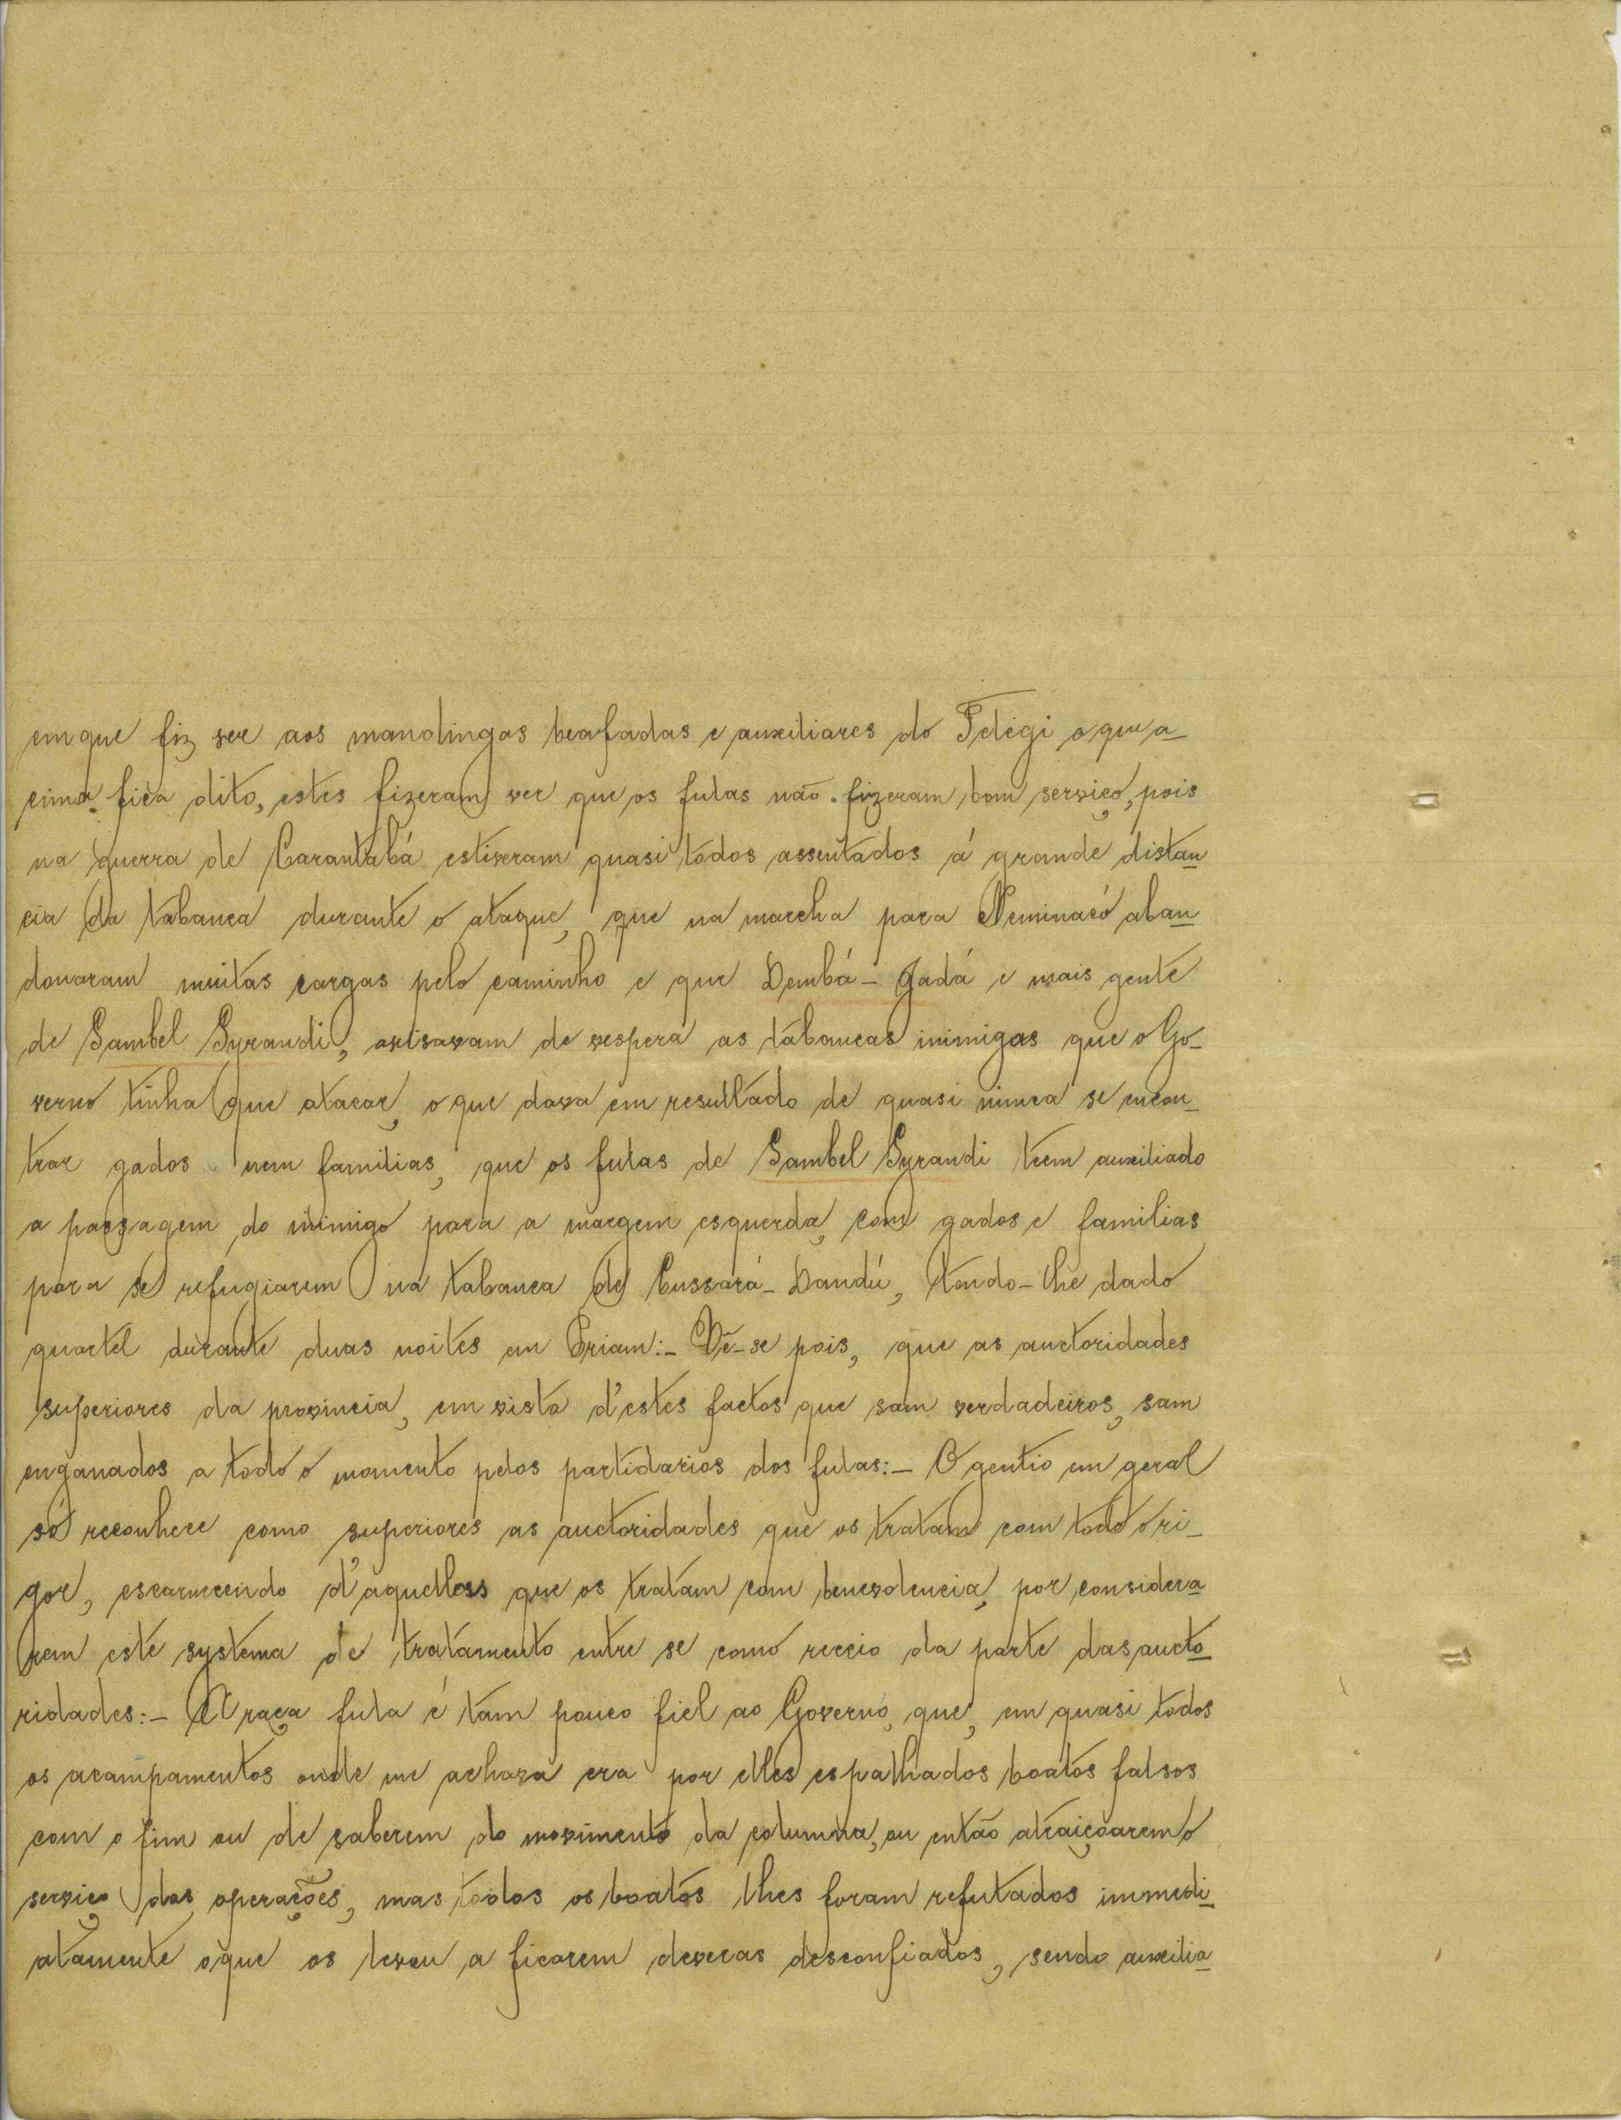 em que fiz ver aos mandingas beafadas e auxiliares do Telégi o que a-
cima fica dito, estes fizeram ver que os fulas não fizeram bom serviço, pois
na guerra de Carantabá estiveram quasi todos assentados á grande distan
cia da tabanca durante o ataque, que na marcha para Neminacó aban
donaram muitas cargas pelo caminho e que Dembá-Jadá e mais gente
de Sambel Syrandi, avisavam de vespera as tabancas inimigas que o Go-
verno tinha que atacar, o que dava em resultado de quasi nunca se encon-
trar gados nem familias, que os fulas de Sambel Syrandi teem auxiliado
a passagem do inimigo para a margem esquerda, com gados e familias
para se refugiarem na tabanca de Cussará-Dandú, tendo-lhe dado
quartel durante duas noites em Priam:- Vê-se pois, que as auctoridades
superiores da provincia, em vista d'estes factos que sam verdadeiros, sam
enganados a todo o momento pelos partidarios dos fulas:- O gentio em geral
só reconhece como superiores as auctoridades que os tratam com todo o ri-
gor, escarnecendo d'aquellas que os tratam com benevolencia, por considera
rem este systema de tratamento entre se como receio da parte das aucto
ridades:- A raça fula é tam pouco fiel ao Governo, que, em quasi todos
os acampamentos onde me achava era por elles espalhados boatos falsos
com o fim ou de saberem do movimento da columna, ou então atraiçoarem o
serviço das operações, mas todos os boatos lhes foram refutados immedi-
atamente o que os levou a ficarem deveras desconfiados, sendo auxilia-